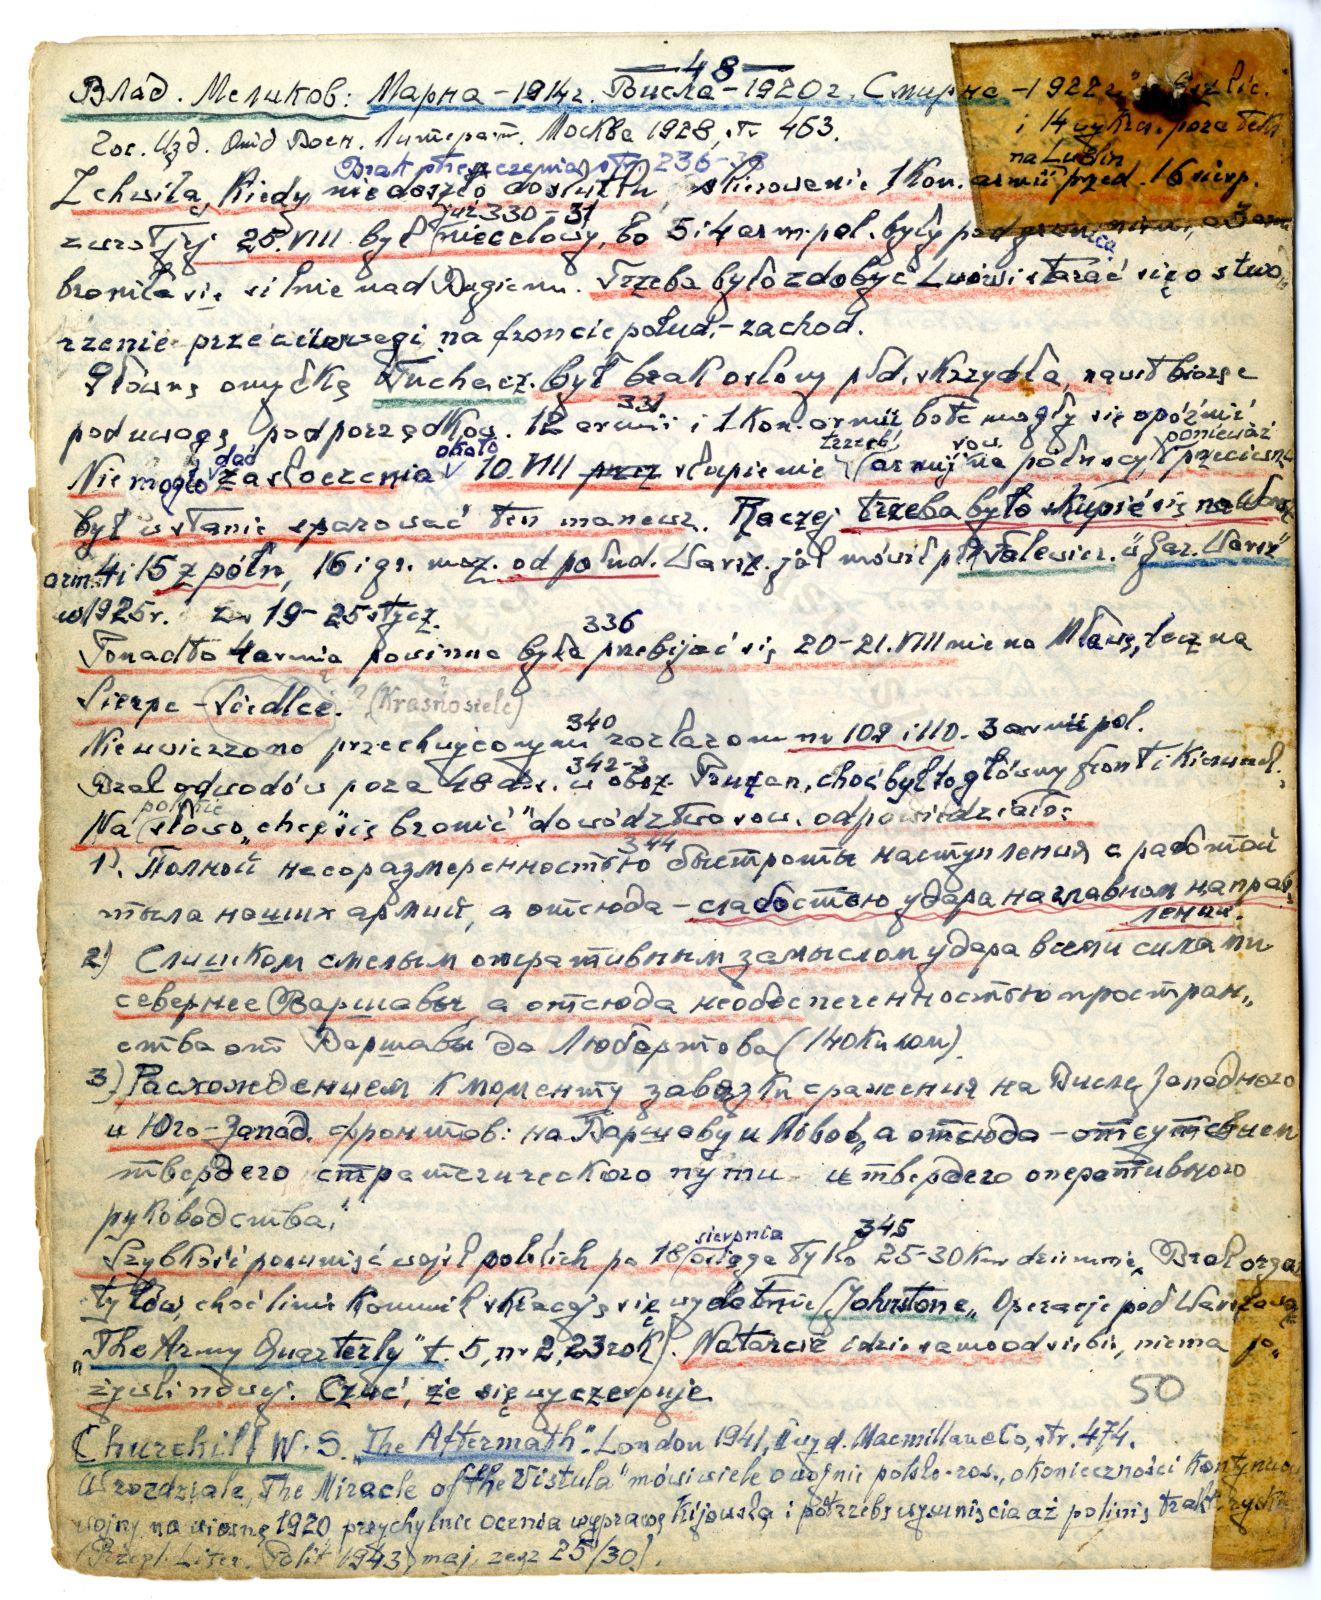 — 48 —
Влад. Меликов: Марна – 1914 г. Висла – 1920 г. Смирна – 1922 г."
Гос. Изд. Отд Воен. Литерат. Москва 1928, str 463.
i 14 wykres. poza tek.
na Lublin
Brak streszczenia str. 236–38
Z chwilą, kiedy nie doszło do skutku skierowanie 1 Kon. armii przed. 16 sierp.
już 330–31
zwrot jej 25.VIII był niecelowy, bo 5 i 4 arm. pol. były pod granicą niem., a 3 arm.
broniła się silnie nad Bugiem. Trzeba było zdobyć Lwów i starać się o stwo
rzenie przeciwwagi na froncie połud.–zachod.
Główną omyłką Tuchacz. był brak osłony płd. skrzydła, nawet biorąc
331
pod uwagę podporządkow. 12 armii i 1 Kon. armii bo te mogły się opóźnić
Nie mogło dać zaskoczenia około 10.VIII skupienie trzech armij row. na północy, ponieważ przeciwnik
był w stanie sparować ten manewr. Raczej trzeba było skupić się na Warsz.
arm. 4 i 15 z półn, 16 i gr. moz. od połud. Warsz. jak mówił płk Walewicz. w „Gaz. Warsz"
w 1925 r. 19–25 stycz.
336
Ponadto 4 armia powinna była przebijać się 20–21.VIII nie na Mławę, lecz na
Sierpc – Siedlce. ? (Krasnosielc)
340
Nie uwierzono przechwyconym rozkazom nr 109 i 110. 3 armii pol.
342–3
Brak odwodów poza 48 dyw. w obsz. Pruzan, choć był to główny front i kierunek.
Na polskie słowo „chcę się bronić" dowództwo sow. odpowiedziało:
344
1). Полной несоразмеренностью быстроты наступления с работой
тыла наших армий, а отсюда – слабостью удара на главном направ
лении.
2) Слишком смелым оперативным замыслом удара всеми силами
севернее Варшавы, а отсюда необеспеченностью простран„
ства от Варшавы до Любартова (140 килом).
3) Расхождением к моменту завязки сражения на Висле Западного
и Юго-Запад. фронтов: на Варшаву и Львов, а отсюда – отсутствием
твердого стратегического пути и твердого оперативного
руководства."
345
Szybkość posunięć wojsk polskich po 18 sierpnia osiąga tylko 25–30 km dziennie. Brak organ
tyłów, choć linie komunik skracają się wydatnie (Johnstone „Operacje pod Warszawą"
„The Army Quarterly" t. 5, nr 2, 23 rok). Natarcie idzie samo od siebie, niema po„
żywki nowej. Czuć, że się wyczerpuje.
50
Churchill W. S. „The Aftermath". London 1941, II wyd. Macmillan & Co, str. 474.
W rozdziale „The Miracle of the Vistula" mówi wiele o wojnie polsko-ros., o konieczności kontynuow
wojny na wiosnę 1920 przychylnie ocenia wyprawę kijowską i potrzebę wysunięcia aż po linię trakt. ryskie
(Przegl. Liter. Polit 1943, maj, zesz 25/30).